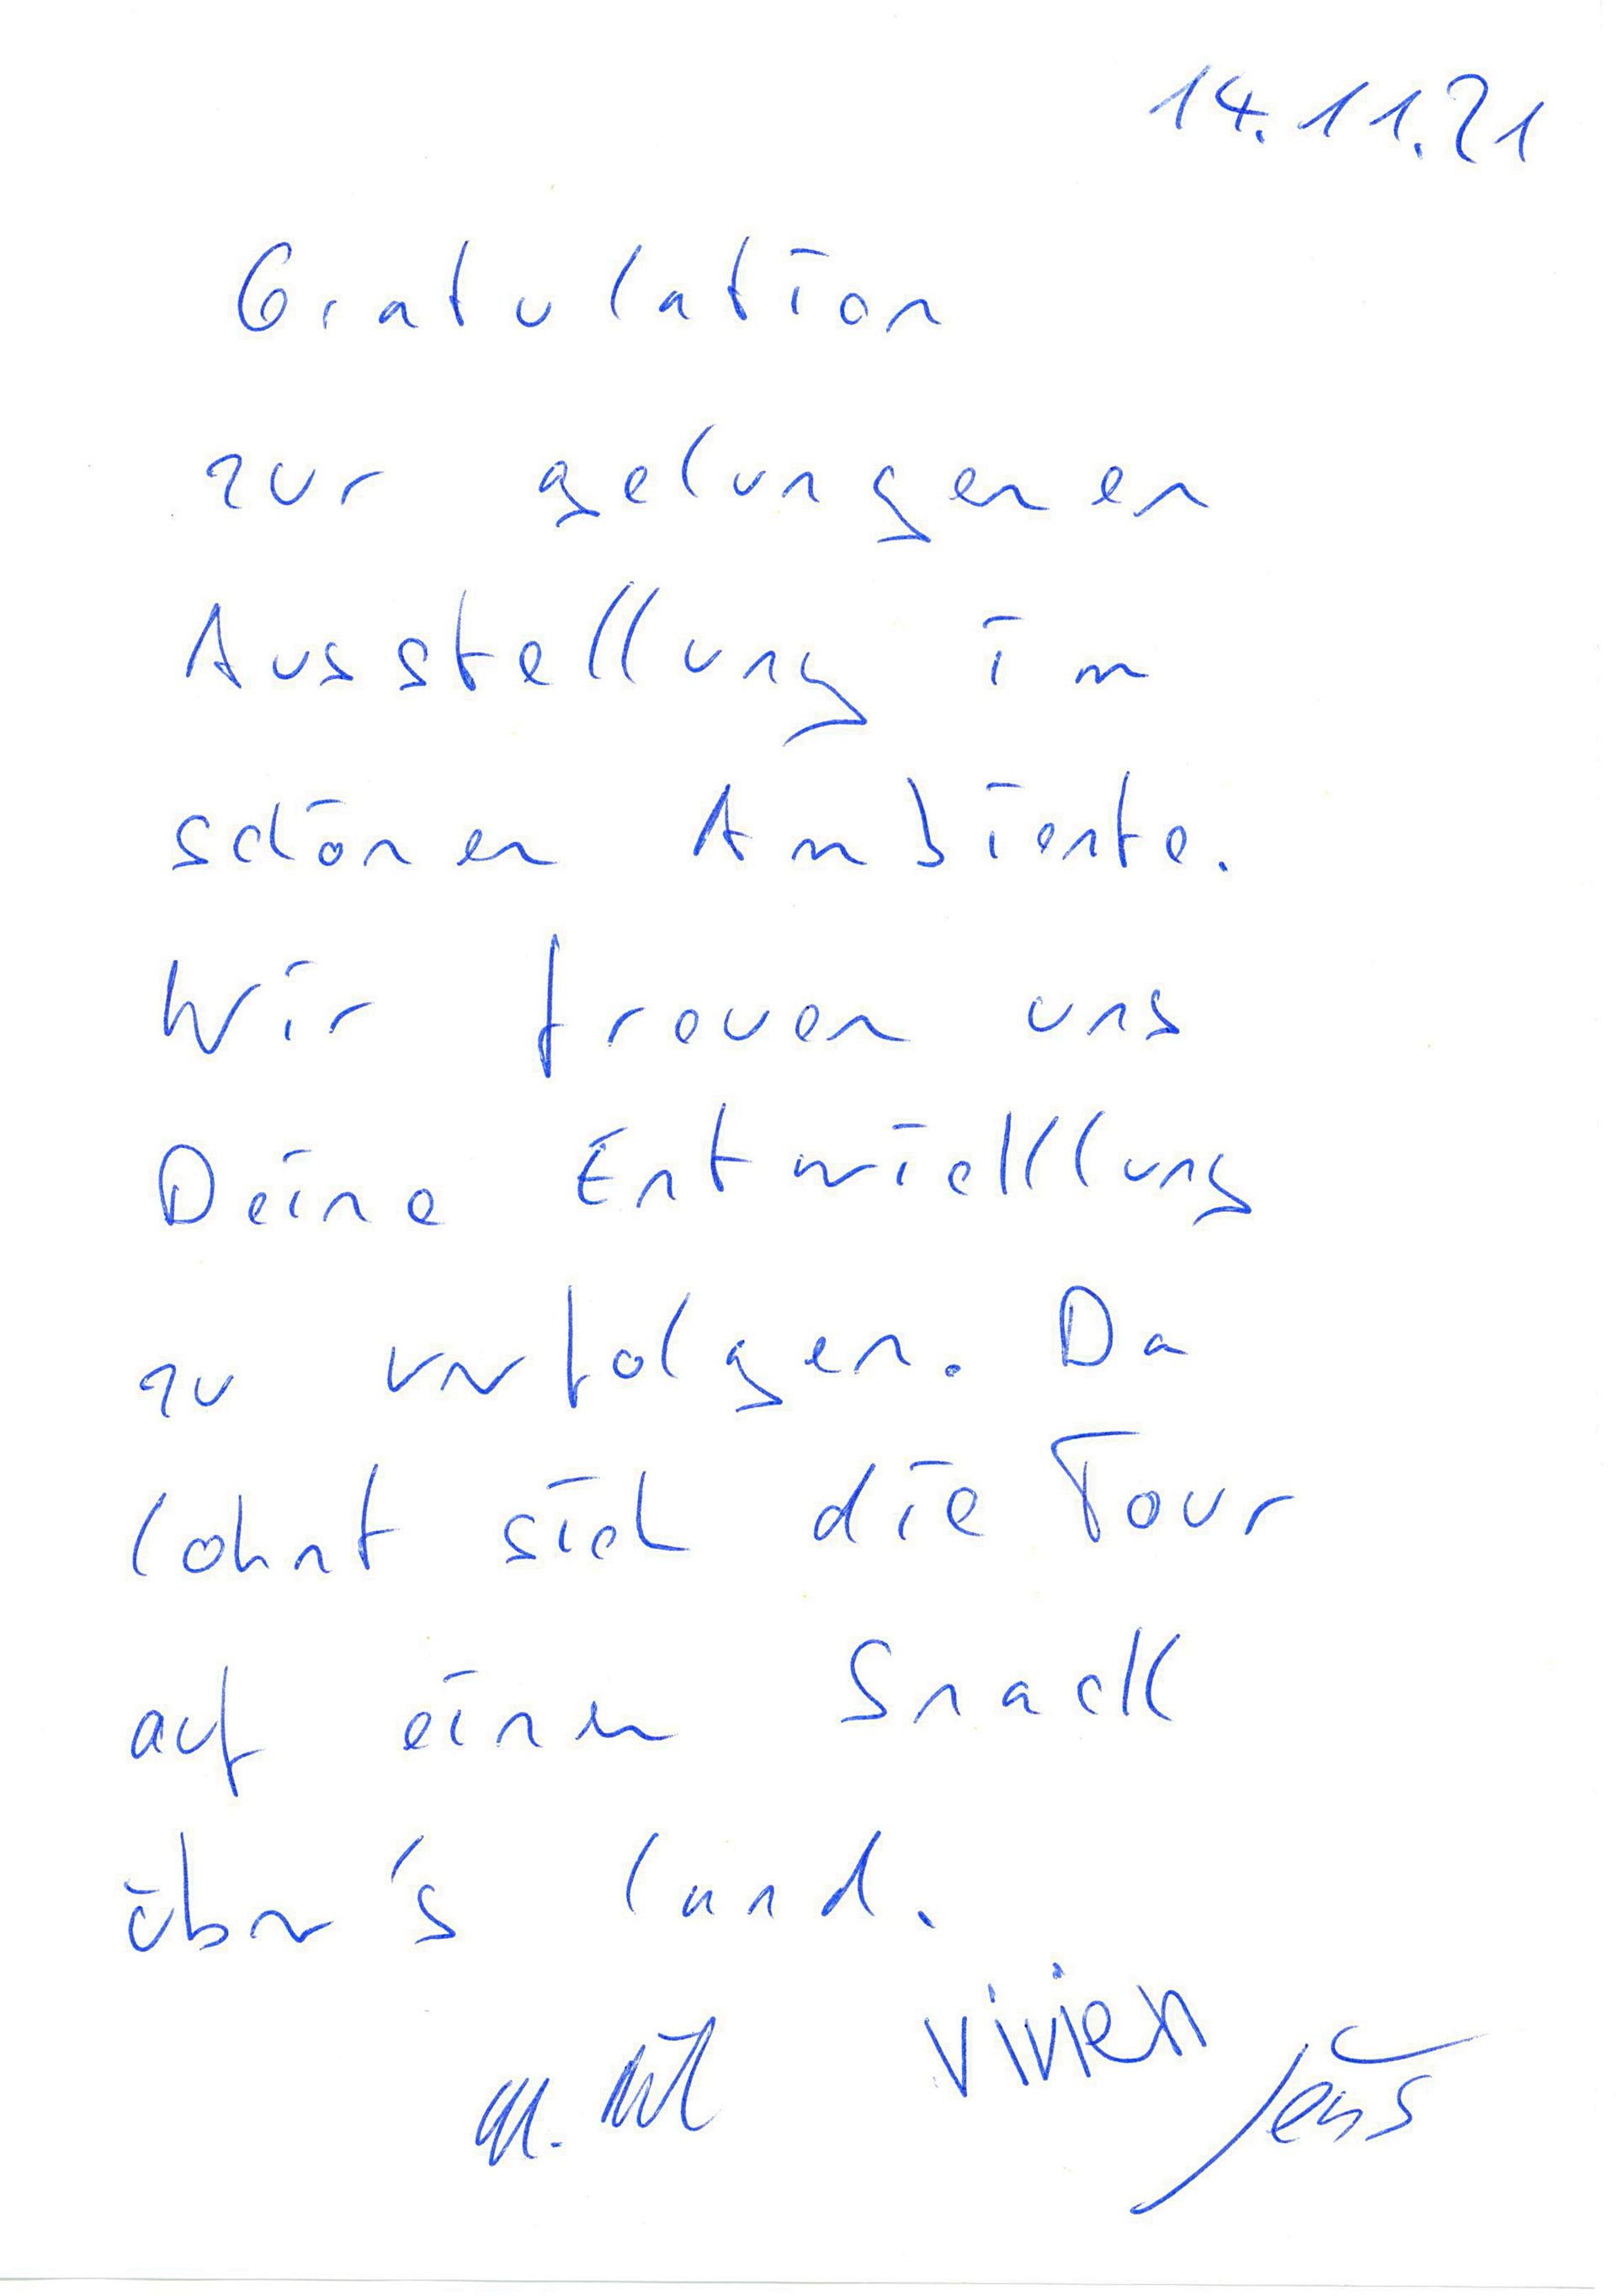 14.11.21
Gratulation
zur gelungenen
Ausstellung im
schönen Ambiente.
Wir freuen uns
Deine Entwicklung
zu verfolgen. Da
lohnt sich die Tour
auf einen Snack
über's Land.
Vivien
Jens